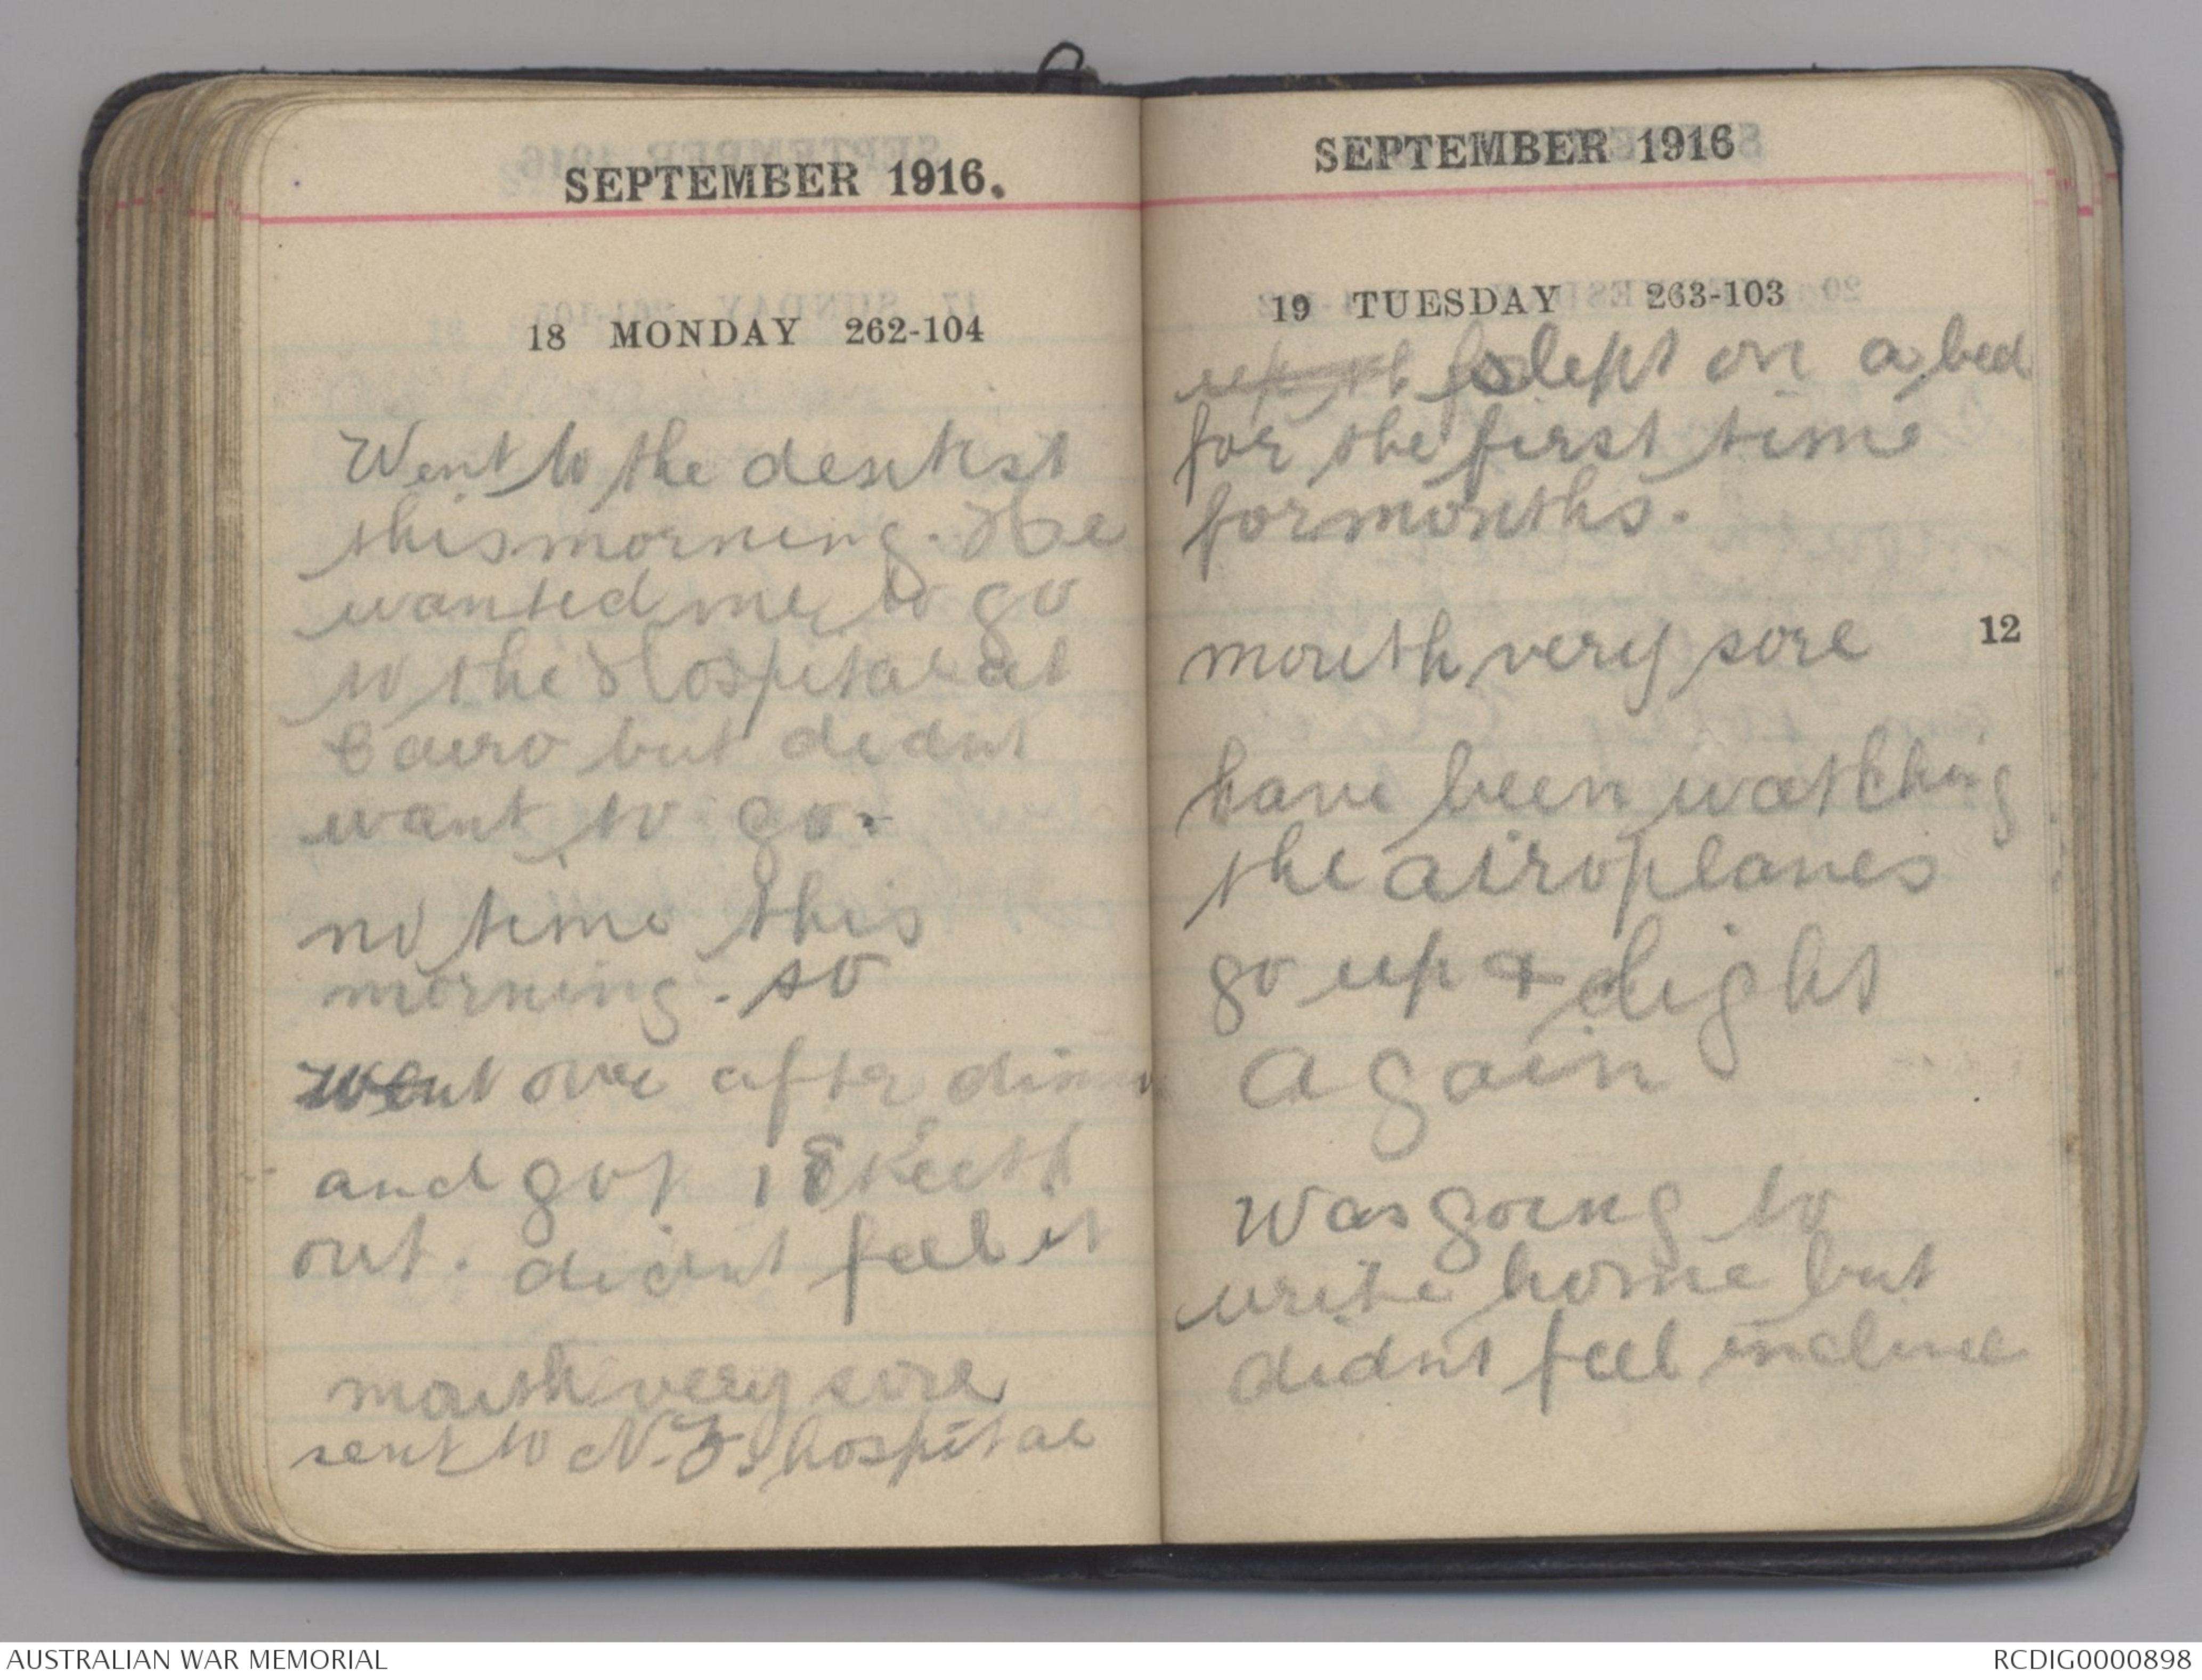 SEPTEMBER 1916.
18 MONDAY 262-104
Went to the dentist
this morning. He
wanted me to go
to the Hospital at
Cairo but didnt
want to go.
no time this
morning. so
went over after dinner
and got 18 teeth
out. didnt feel it
mouth very sore
sent to N.Z. hospital
SEPTEMBER 1916
19 TUESDAY 263-103
slept on a bed
for the first time
for months.
12
mouth very sore
have been watching
the airoplanes
go up & light
again
Was going to
write home but
didnt feel incline
AUSTRALIAN WAR MEMORIAL
RCDIG0000898